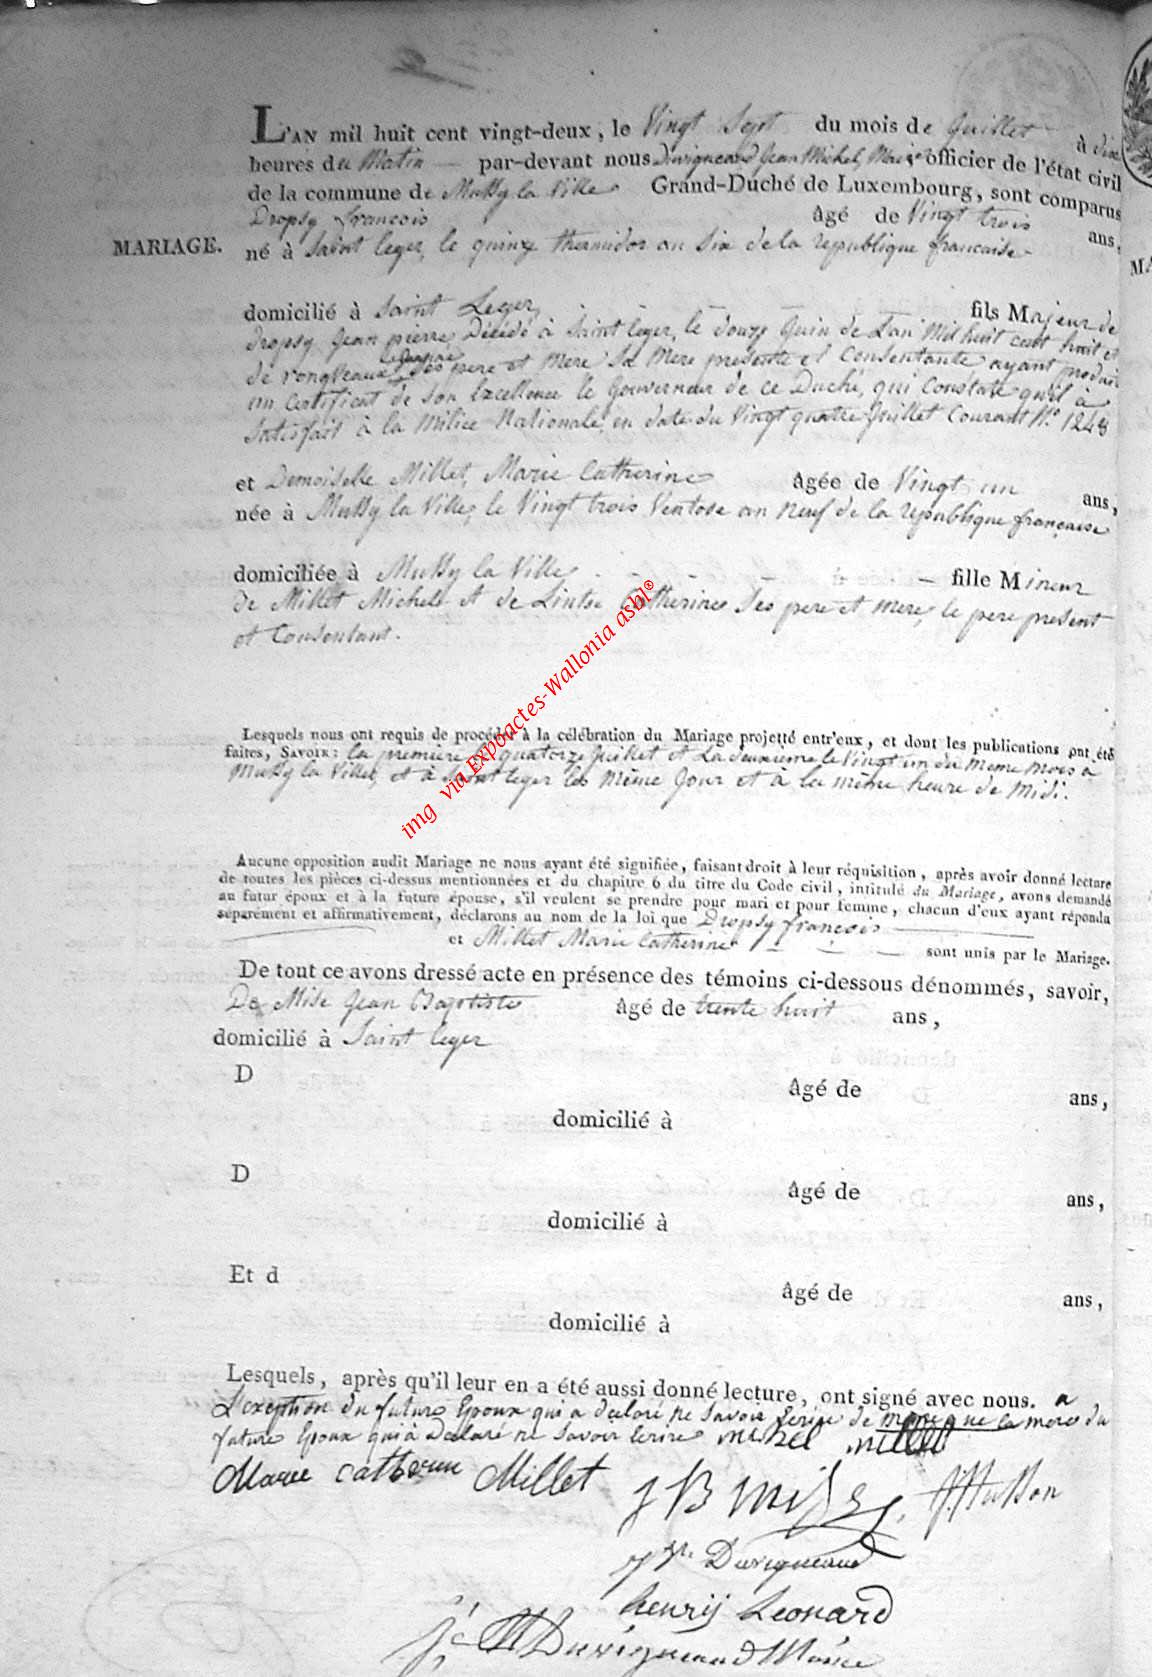 L'AN mil huit cent vingt-deux, le Vingt Sept du mois de Juillet à dix
heures du Matin par-devant nous Duvigneaud Jean Michel, Maire officier de l'état civil
de la commune de Mussy la Ville Grand-Duché de Luxembourg, sont comparus
Dropsy francois âgé de Vingt trois ans,
MARIAGE.
né à Saint leger, le quinze thermidor an Six de la republique francaise
domicilié à Saint Leger, fils Majeur de
Dropsy Jean pierre, Décédé à Saint leger, le douze Juin de L'an Mil huit cent huit et
de rongveaux Ses pere et Mere Sa Mere presente et Consentante ayant produit
un Certificat de Son Excellence le Gouverneur de ce Duché, qui Constate qu'il à
Satisfait à la Milice Nationale, en date du Vingt quatre Juillet Courant N.º 1248
et Demoiselle Millet, Marie Catherine âgée de Vingt un ans,
née à Mussy la Ville, le Vingt trois Ventose an neuf de la republique française
domiciliée à Mussy la Ville fille Mineur
de Millet Michel et de Lintse Catherine Ses pere et mere, le pere present
et Consentant.
Lesquels nous ont requis de procéder à la célébration du Mariage projetté entr'eux, et dont les publications ont été
faites, SAVOIR: la premiere le quatorze Juillet et La deuxieme le Vingt un du meme mois a
Mussy la Ville, et à Saint leger les Même Jour et à la même heure de Midi.
Aucune opposition audit Mariage ne nous ayant été signifiée, faisant droit à leur réquisition, après avoir donné lecture
de toutes les pièces ci-dessus mentionnées et du chapitre 6 du titre du Code civil, intitulé du Mariage, avons demandé
au futur époux et à la future épouse, s'il veulent se prendre pour mari et pour femme, chacun d'eux ayant répondu
séparément et affirmativement, déclarons au nom de la loi que Dropsy françois
et Millet Marie Catherine sont unis par le Mariage.
De tout ce avons dressé acte en présence des témoins ci-dessous dénommés, savoir,
De Mise Jean Baptiste âgé de trente huit ans,
domicilié à Saint leger
D âgé de ans,
domicilié à
D âgé de ans,
domicilié à
Et d âgé de ans,
domicilié à
Lesquels, après qu'il leur en a été aussi donné lecture, ont signé avec nous. a
L'exception du future Epoux qui a declaré ne Savoir Ecrire de meme que la mere du
future Epoux qui à Declaré ne Savoir Ecrire michel millet
Marie catherin Millet J B Mise, Husson
Duvigneaud
henrij Leonard
J M Duvigneaud Maire
img via Expoactes-Wallonia asbl®